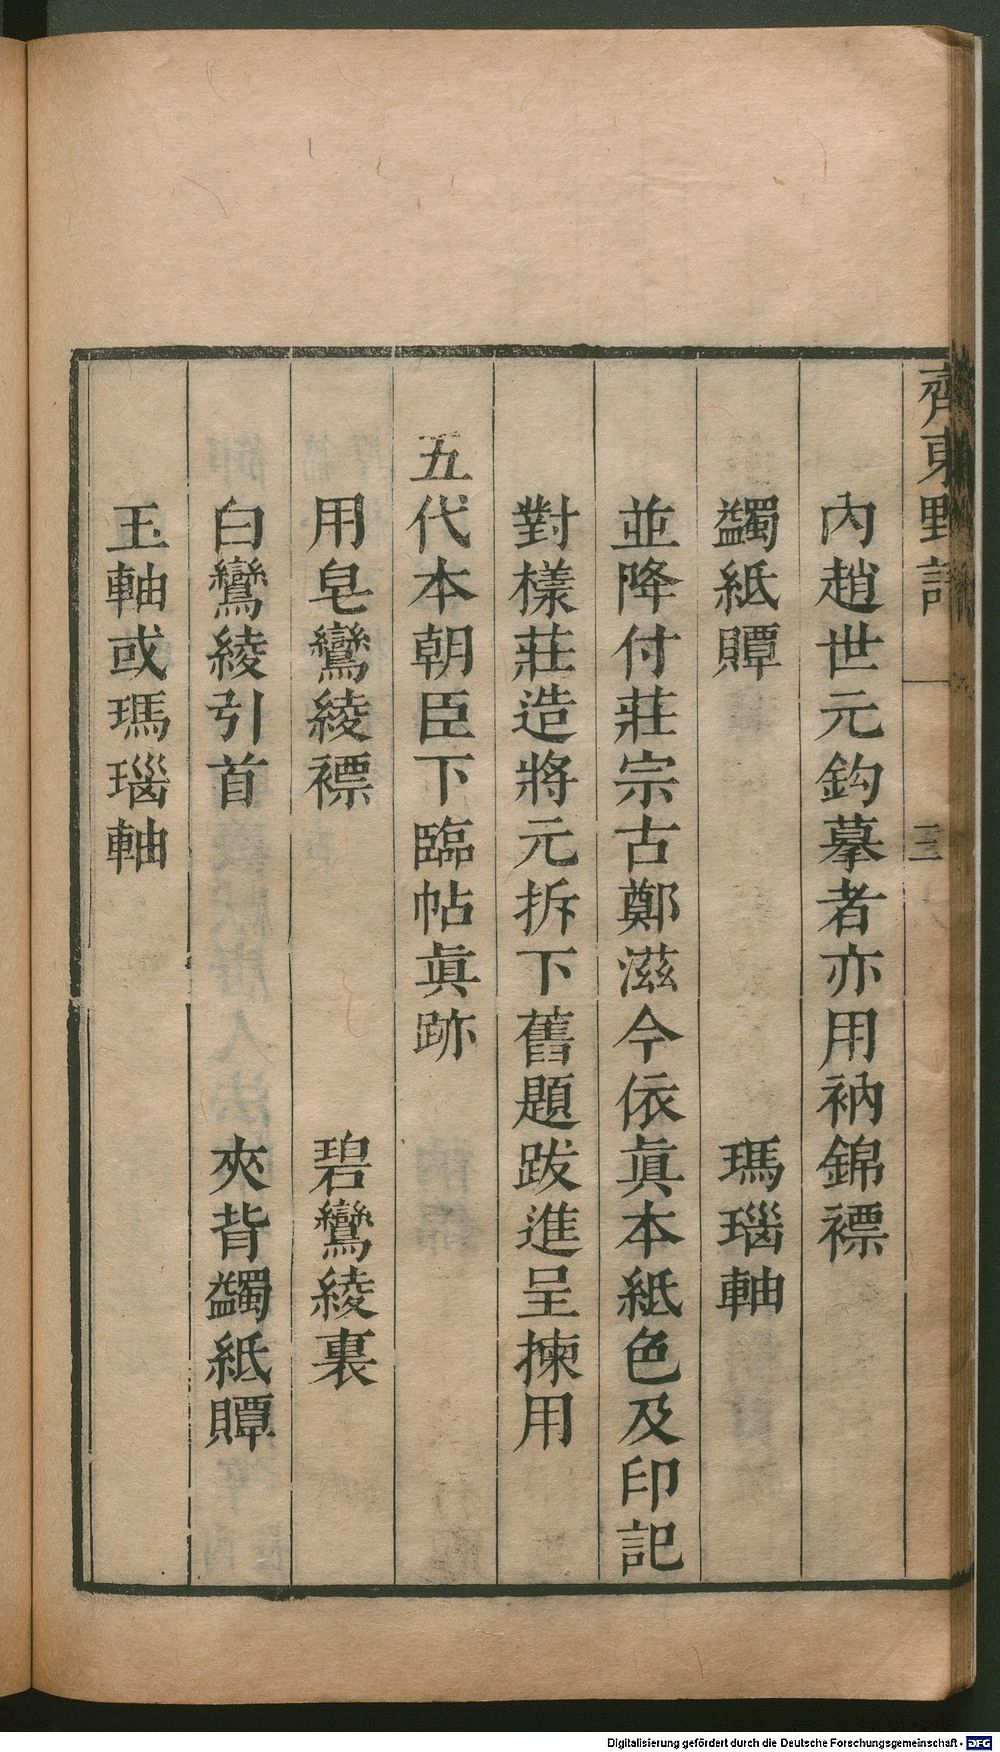 齊東野語
三
內趙世元鈎摹者亦用衲錦褾
蠲紙贉 瑪瑙軸
並降付莊宗古鄭滋令依眞本紙色及印記
對樣莊造將元拆下舊題跋進呈揀用
五代本朝臣下臨帖眞跡
用皂鸞綾褾 碧鸞綾裏
白鸞綾引首 夾背蠲紙贉
玉軸或瑪瑙軸
Digitalisierung gefördert durch die Deutsche Forschungsgemeinschaft - DFG